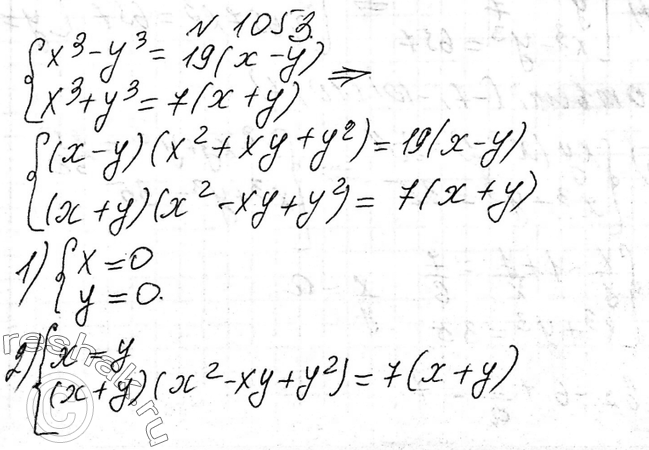 № 1053.
{ x³ - y³ = 19(x - y)
{ x³ + y³ = 7(x + y) ⇒
{ (x - y)(x² + xy + y²) = 19(x - y)
{ (x + y)(x² - xy + y²) = 7(x + y)
1) { x = 0
{ y = 0.
2) { x = y
{ (x + y)(x² - xy + y²) = 7(x + y)
reshak.ru